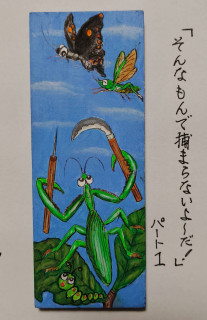 「そんなもんで捕まらないよ〜だ!」
パート1